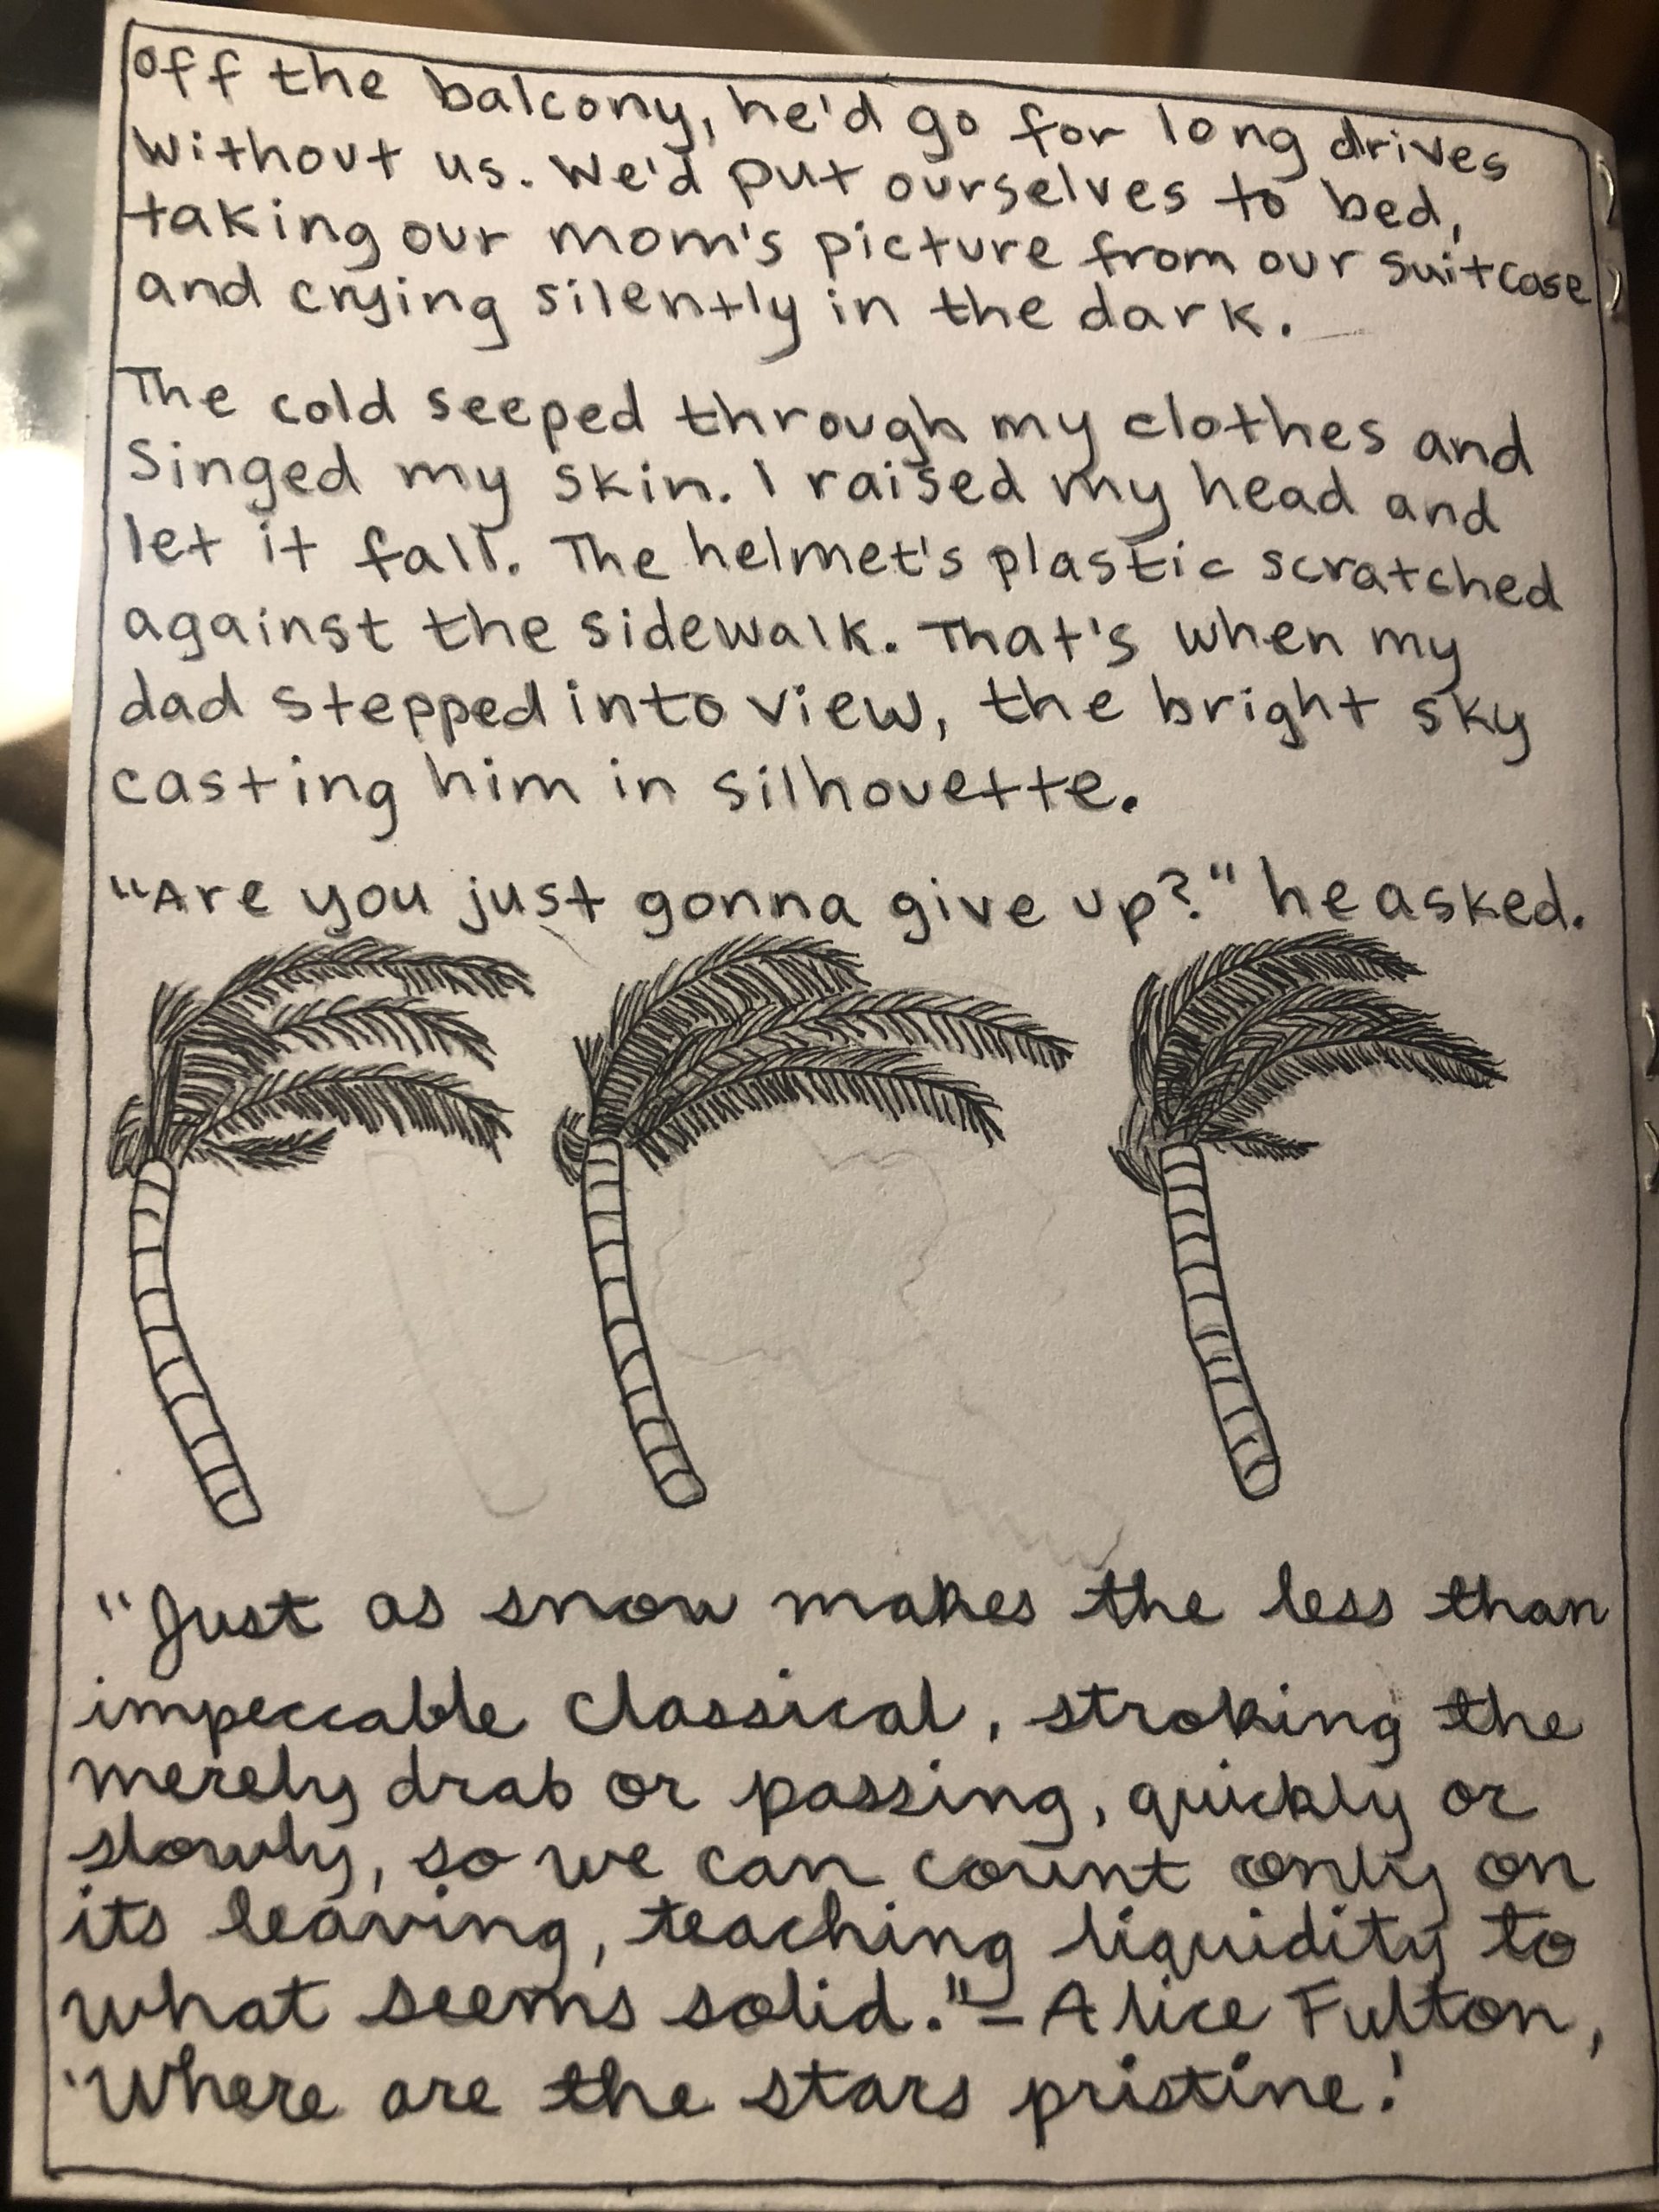 off the balcony, he'd go for long drives
without us. We'd put ourselves to bed,
taking our mom's picture from our suitcase
and crying silently in the dark.
The cold seeped through my clothes and
singed my skin. I raised my head and
let it fall. The helmet's plastic scratched
against the sidewalk. That's when my
dad stepped into view, the bright sky
casting him in silhouette.
"Are you just gonna give up?" he asked.
"Just as snow makes the less than
impeccable classical, stroking the
merely drab or passing, quickly or
slowly, so we can count only on
its leaving, teaching liquidity to
what seems solid." - Alice Fulton,
'Where are the stars pristine.'